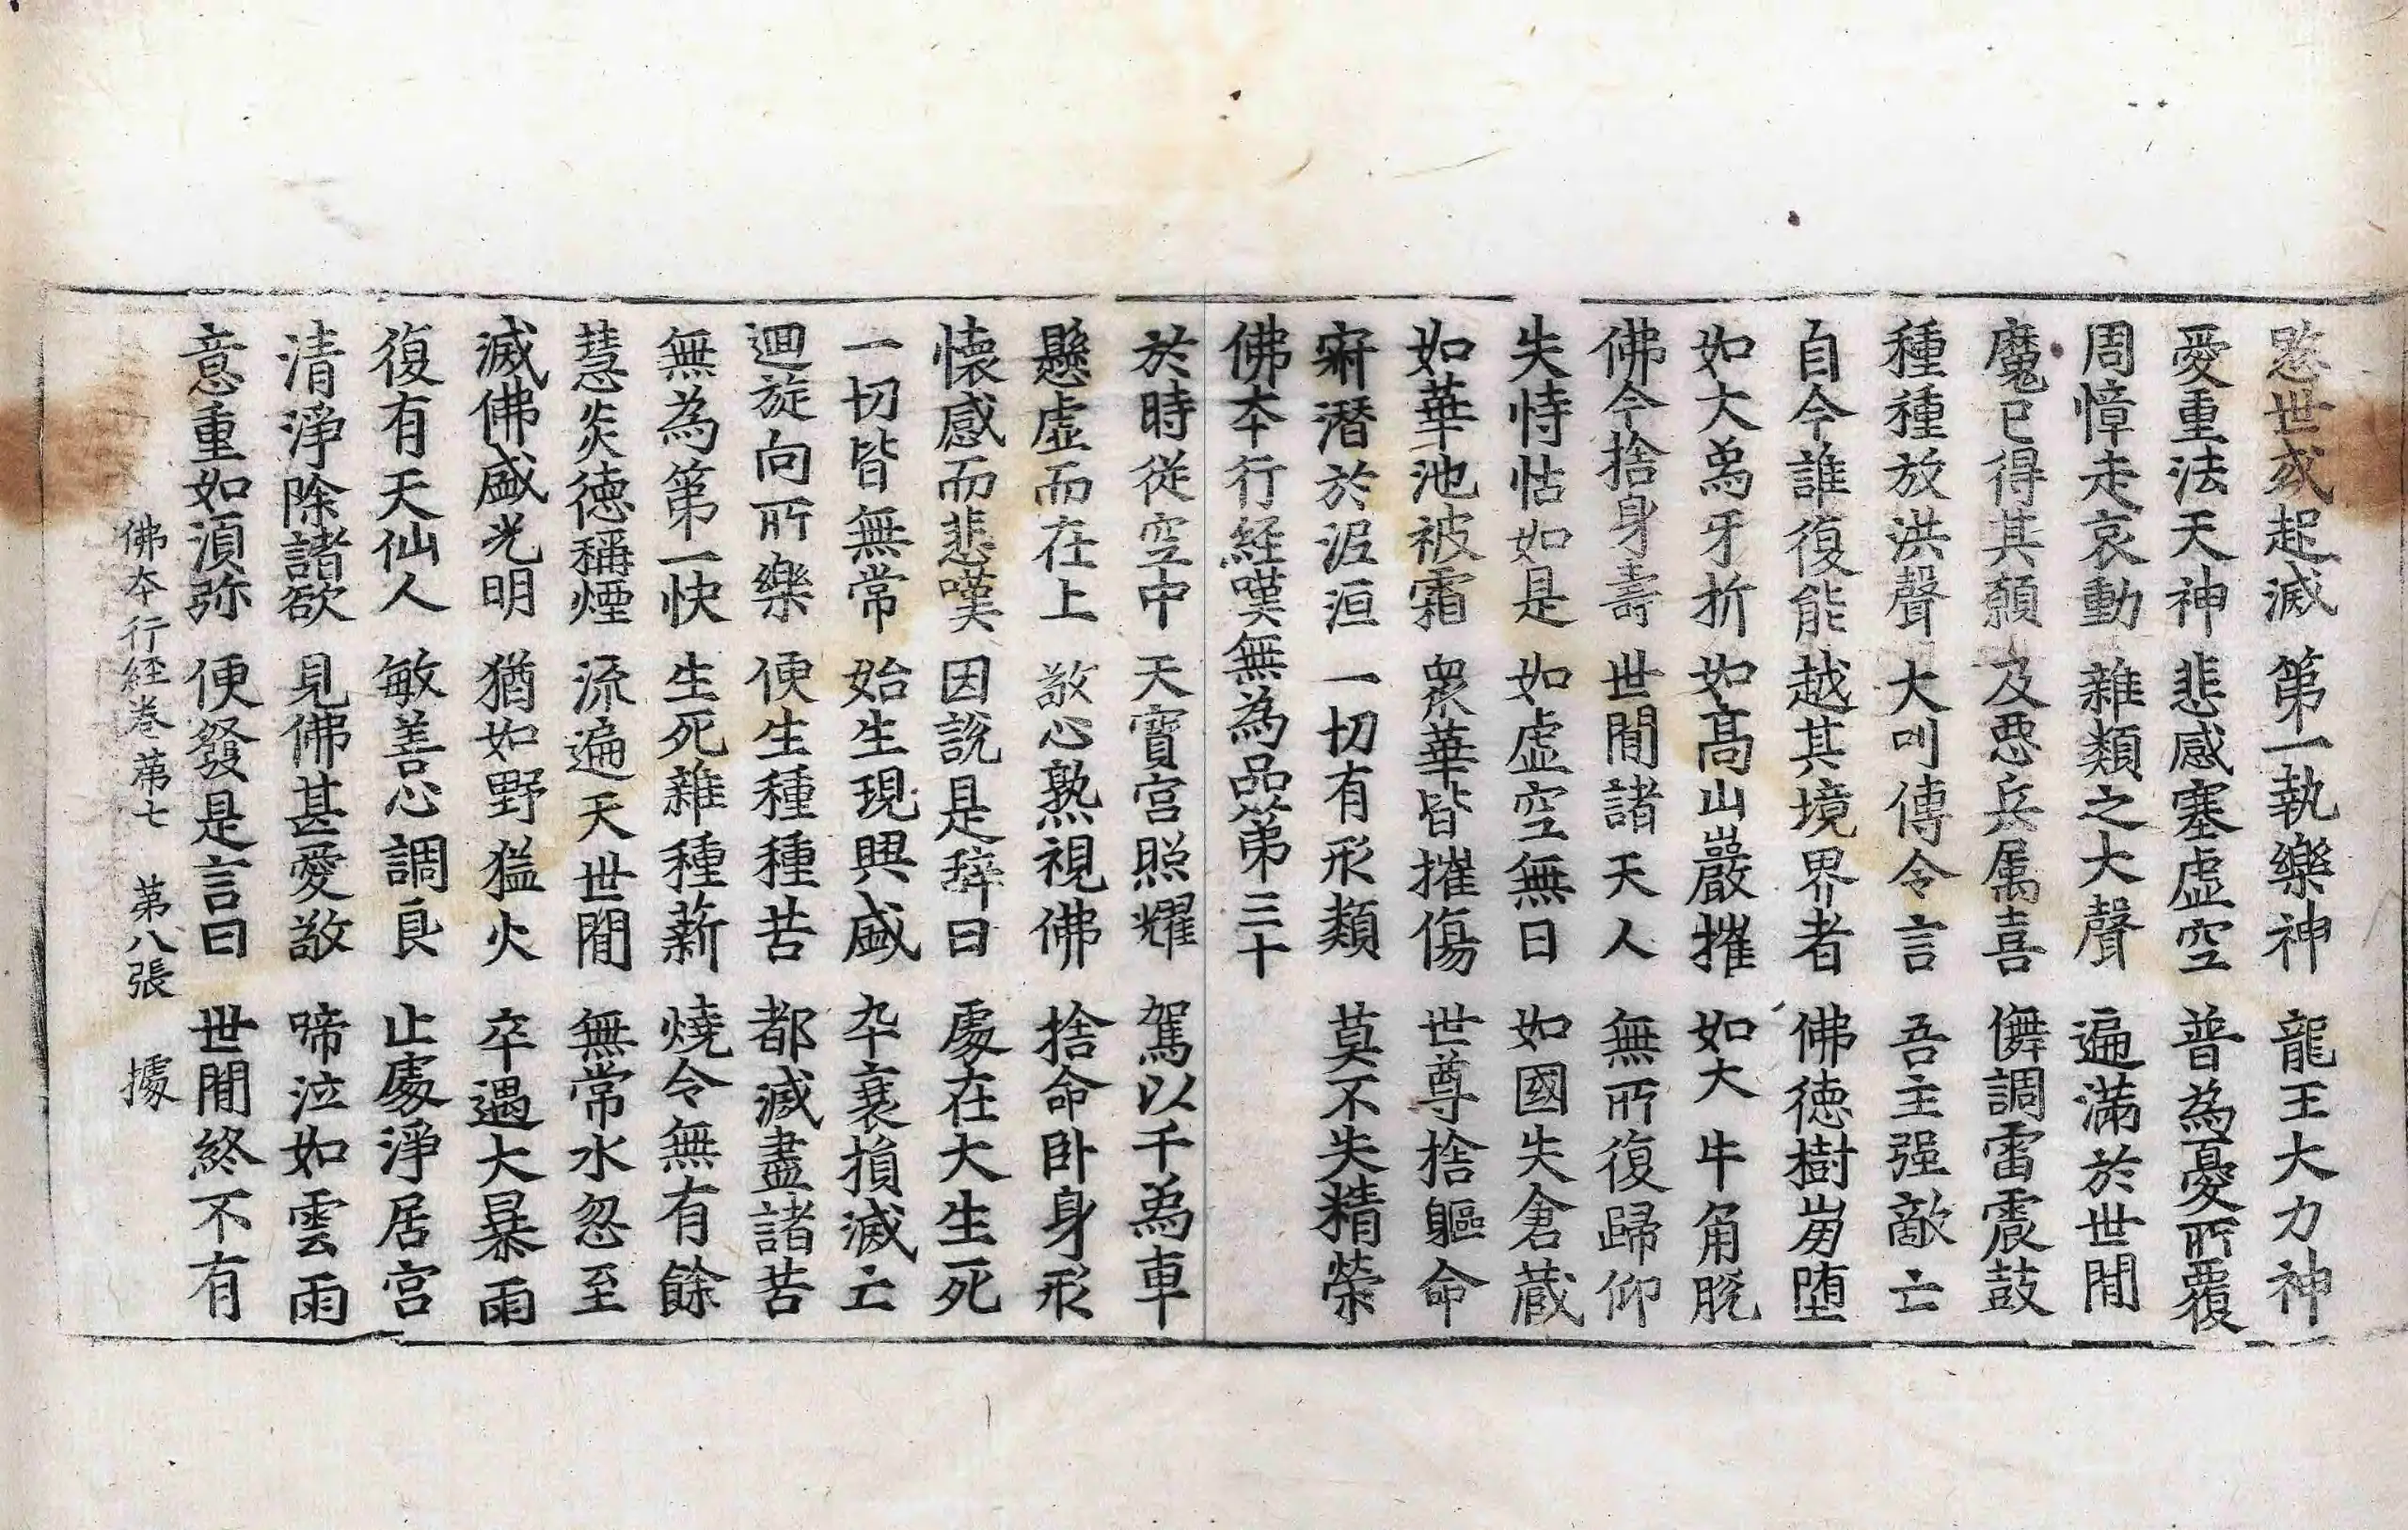 愍世或起滅　第一執樂神　龍王大力神
愛重法天神　悲感塞虛空　普為憂所覆
周慞走哀動　雜類之大聲　遍滿於世閒
魔已得其願　及惡兵属喜　儛調雷震鼓
種種放洪聲　大叫傳令言　吾主强敵亡
自今誰復能　越其境界者　佛德樹崩墮
如大為牙折　如高山巖摧　如大牛角脫
佛今捨身壽　世閒諸天人　無所復歸仰
失恃怙如是　如虛空無日　如國失倉藏
如華池被霜　眾華皆摧傷　世尊捨軀命
㝛潛於泥洹　一切有形類　莫不失精榮
佛本行經嘆無為品第三十
於時從空中　天寶宮照耀　駕以千為車
懸虛而在上　敬心熟視佛　捨命臥身形
懷感而悲嘆　因說是辞曰　處在大生死
一切皆無常　始生現興盛　卒衰損滅亡
迴旋向所樂　便生種種苦　都滅盡諸苦
無為第一快　生死雜種薪　燒令無有餘
慧炎德稱煙　流遍天世閒　無常水忽至
滅佛盛光明　猶如野猛火　卒遇大暴雨
復有天仙人　敏善心調良　止處淨居宮
清淨除諸欲　見佛甚愛敬　啼泣如雲雨
意重如湏弥　便發是言曰　世閒終不有
佛本行經卷第七　第八張　據